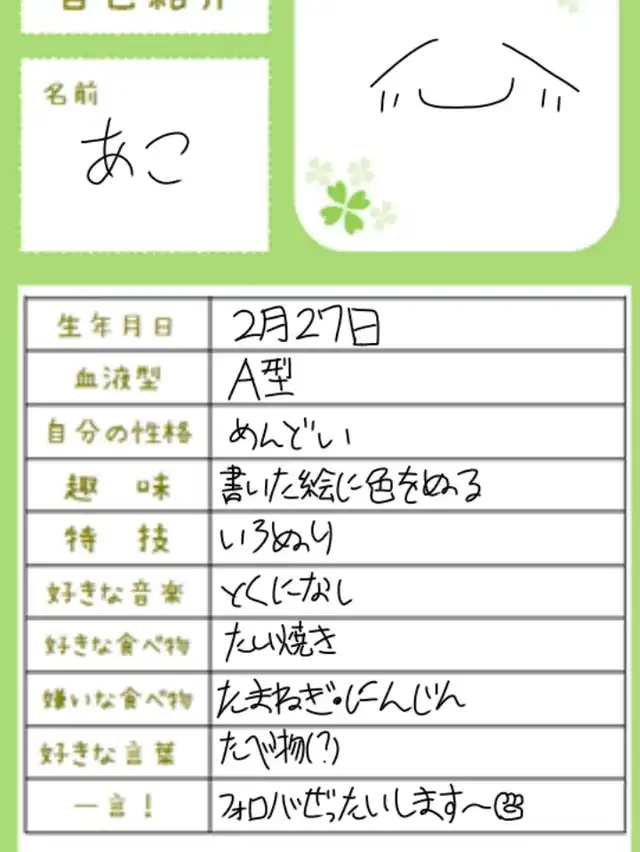 自己紹介
名前
あこ
生年月日 2月27日
血液型 A型
自分の性格 めんどい
趣味 書いた絵に色をぬる
特技 いろぬり
好きな音楽 とくになし
好きな食べ物 たい焼き
嫌いな食べ物 たまねぎ•にんじん
好きな言葉 たべ物(?)
一言! フォロバぜったいします〜